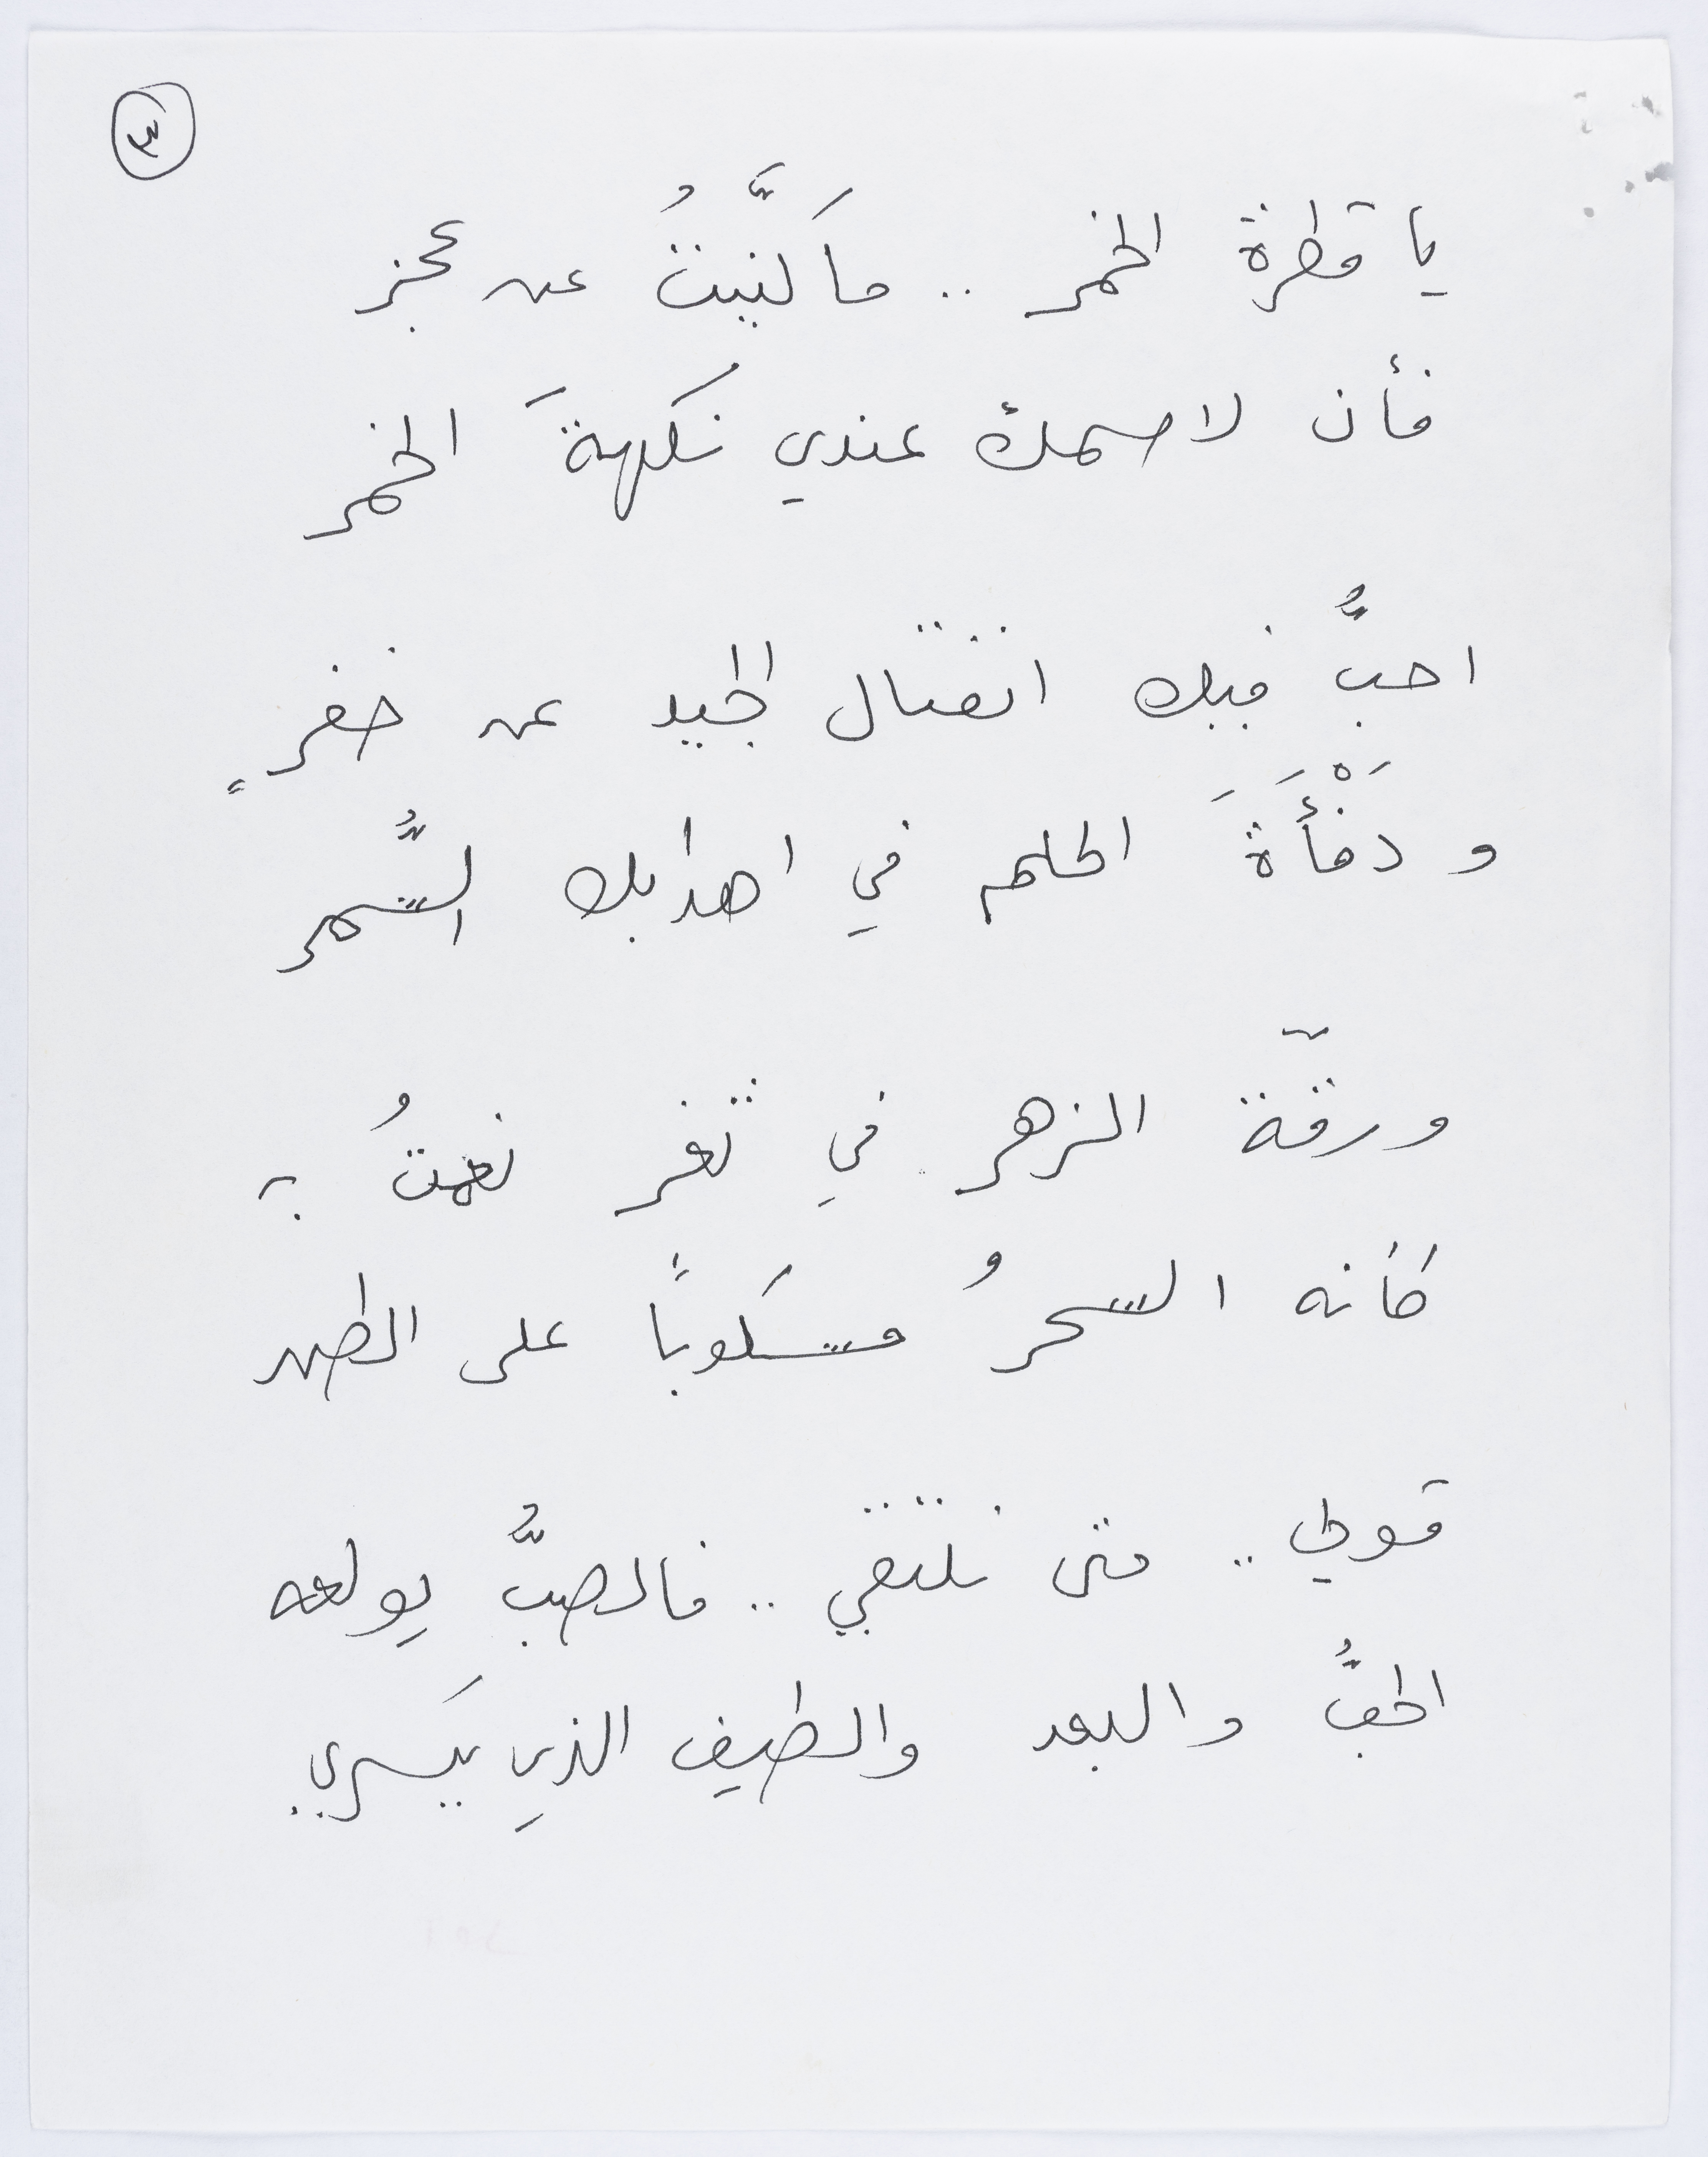 ٣
يا قطرة الخمر .. ما كَنَّيتُ عن عجز
فأن لاسمك عندي نكهةَ الخمر
احبُّ فيك انفتال الجيد عن خفرٍ
و دَفْأَةَ الحلم في اهدابك السُّمر
ورقّة الزهر في ثغر نعمتُ به
كأنه السحرُ مسكوباً على الطهر
قولي .. متى نلتقي .. فالصبُّ يولعه
الحبُّ والبعد والطيف الذي يسري